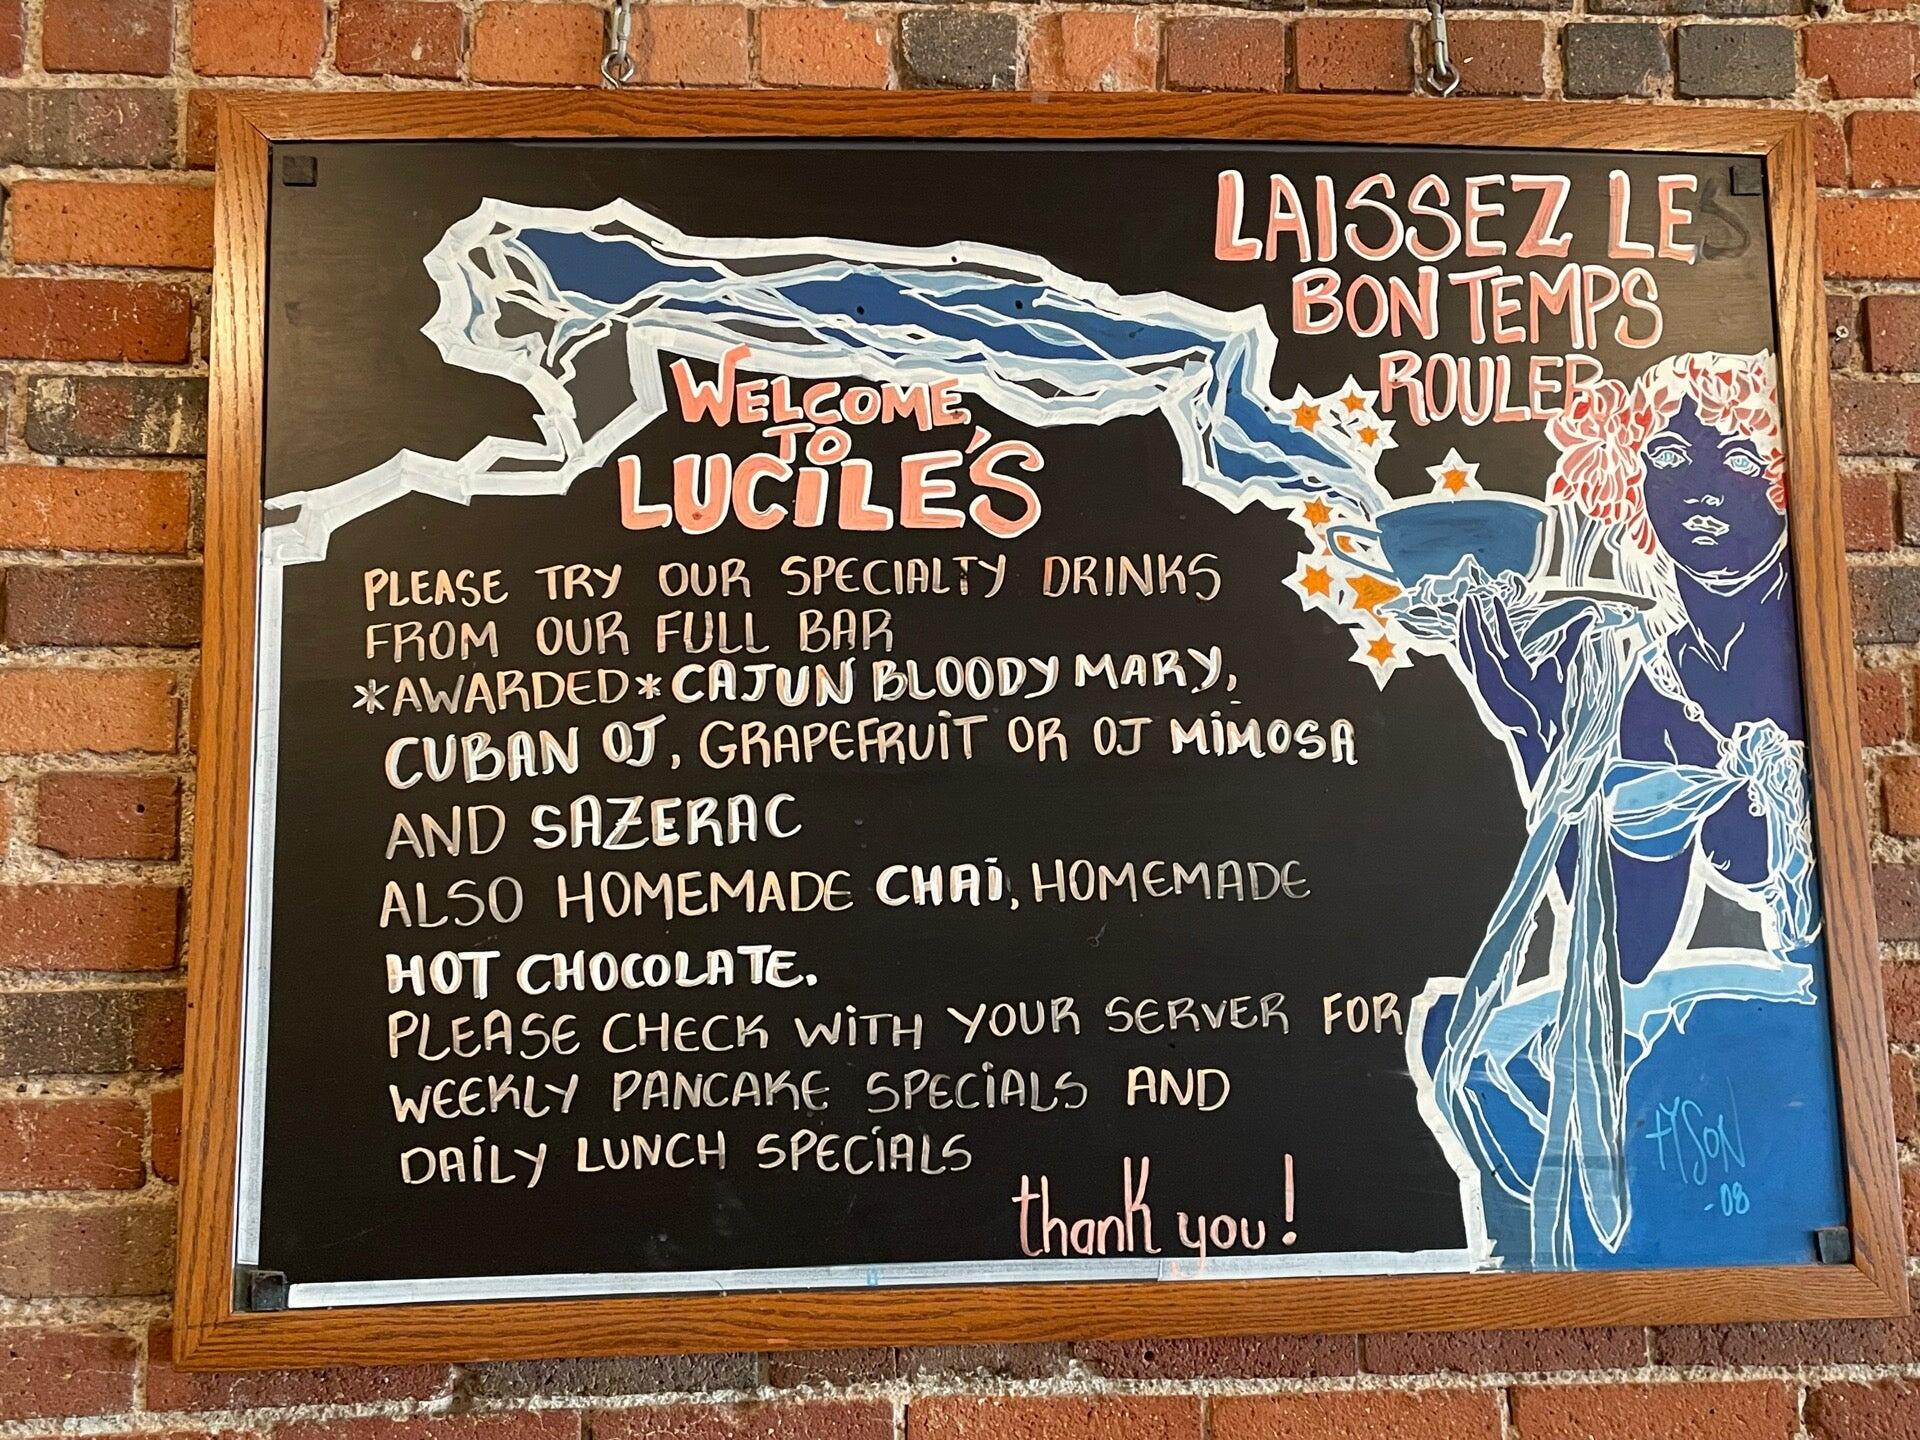 LAISSEZ LES
BON TEMPS
ROULER
WELCOME
TO
LUCILE'S
PLEASE TRY OUR SPECIALTY DRINKS
FROM OUR FULL BAR
*AWARDED* CAJUN BLOODY MARY,
CUBAN OJ, GRAPEFRUIT OR OJ MIMOSA
AND SAZERAC
ALSO HOMEMADE CHAI, HOMEMADE
HOT CHOCOLATE.
PLEASE CHECK WITH YOUR SERVER FOR
WEEKLY PANCAKE SPECIALS AND
DAILY LUNCH SPECIALS
thank you!
TYSON
-08